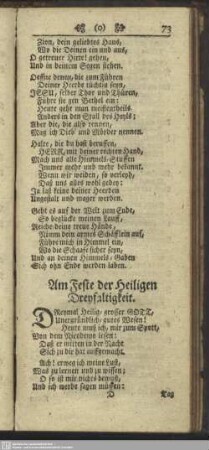 (0) 73
Zion, dein geliebtes Haus,
Wo die Deinen ein und aus,
O getreuer Hirte! gehen,
Und in deinem Segen stehen.
Oeffne denno, die zum Führen
Deiner Heerde tüchtig seyn,
JESU, selber Thor und Thüren,
Führe sie zen Bethel ein:
Heute geht man meistentheils
Anders in den Stall des Heyls;
Aber die, die also rennen,
Mag ich Dieb und Mörder nennen.
Halte, die du hast beruffen,
HERR, mit deiner rechten Hand,
Mach uns alle Himmels-Stuffen
Immer mehr und mehr bekannt.
Wenn wir weiden, so verleyh,
Daß uns alles wohl gedey:
Ja laß keine deiner Heerden
Angefallt und mager werden.
Geht es auf der Welt zum Ende,
So beglücke meinen Lauff,
Reiche deine treue Hände,
Nimm dein armes Schäfflein auf,
Führe mich in Himmel ein,
Wo die Schaafe sicher seyn,
Und an deinen Himmels-Gaben
Sich ohn Ende werden laben.
Am Feste der Heiligen
Dreyfaltigkeit.
DReymal Heilig, grosser GOTT,
Unergründlich-gutes Wesen!
Heute muß ich, mir zum Spott,
Von dem Nicodemo lesen:
Daß er mitten in der Nacht
Sich zu dir hat aufgemacht.
Ach! erweg ich meine Lust,
Was zu lernen und zu wissen:
O so ist mir nichts bewust,
Und ich werde sagen müssen:
D Tag